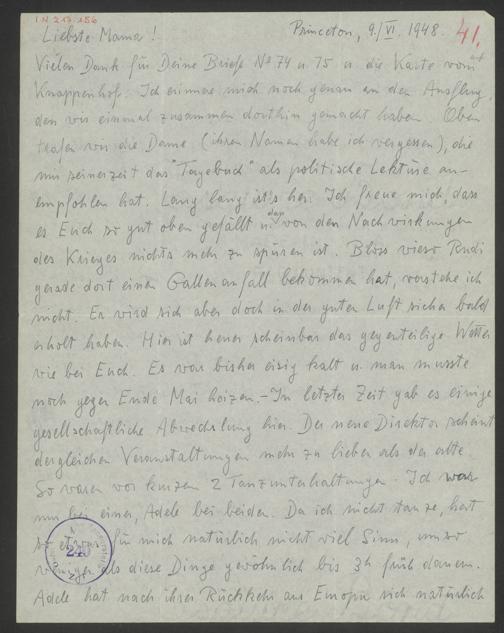 IN 213.156
Princeton, 9./VI. 1948.
41.
Liebste Mama!
Vielen Dank für Deine Briefe No 74 u. 75 u. die Karte vom
Knappenhof. Ich erinnere mich noch genau an den Ausflug,
den wir einmal zusammen dorthin gemacht haben. Oben
trafen wir die Dame (ihren Namen habe ich vergessen), die
mir seinerzeit das "Tagebuch" als politische Lektüre an-
empfohlen hat. Lang lang ist's her. Ich freue mich, dass
es Euch so gut oben gefällt u. dass von den Nachwirkungen
des Krieges nichts mehr zu spüren ist. Bloss wieso Rudi
gerade dort einen Gallenanfall bekommen hat, verstehe ich
nicht. Er wird sich aber doch in der guten Luft sicher bald
erholt haben. Hier ist heuer scheinbar das gegenteilige Wetter
wie bei Euch. Es war bisher eisig kalt u. man musste
noch gegen Ende Mai heizen.- In letzter Zeit gab es einige
gesellschaftliche Abwechslung hier. Der neue Direktor scheint
dergleichen Veranstaltungen mehr zu lieben als der alte.
So waren vor kurzem 2 Tanzunterhaltungen. Ich war
nur bei einer, Adele bei beiden. Da ich nicht tanze, hat
so etwas für mich natürlich nicht viel Sinn, umso
weniger als diese Dinge gewöhnlich bis 3h früh dauern.
240
Adele hat nach ihrer Rückkehr aus Europa sich natürlich